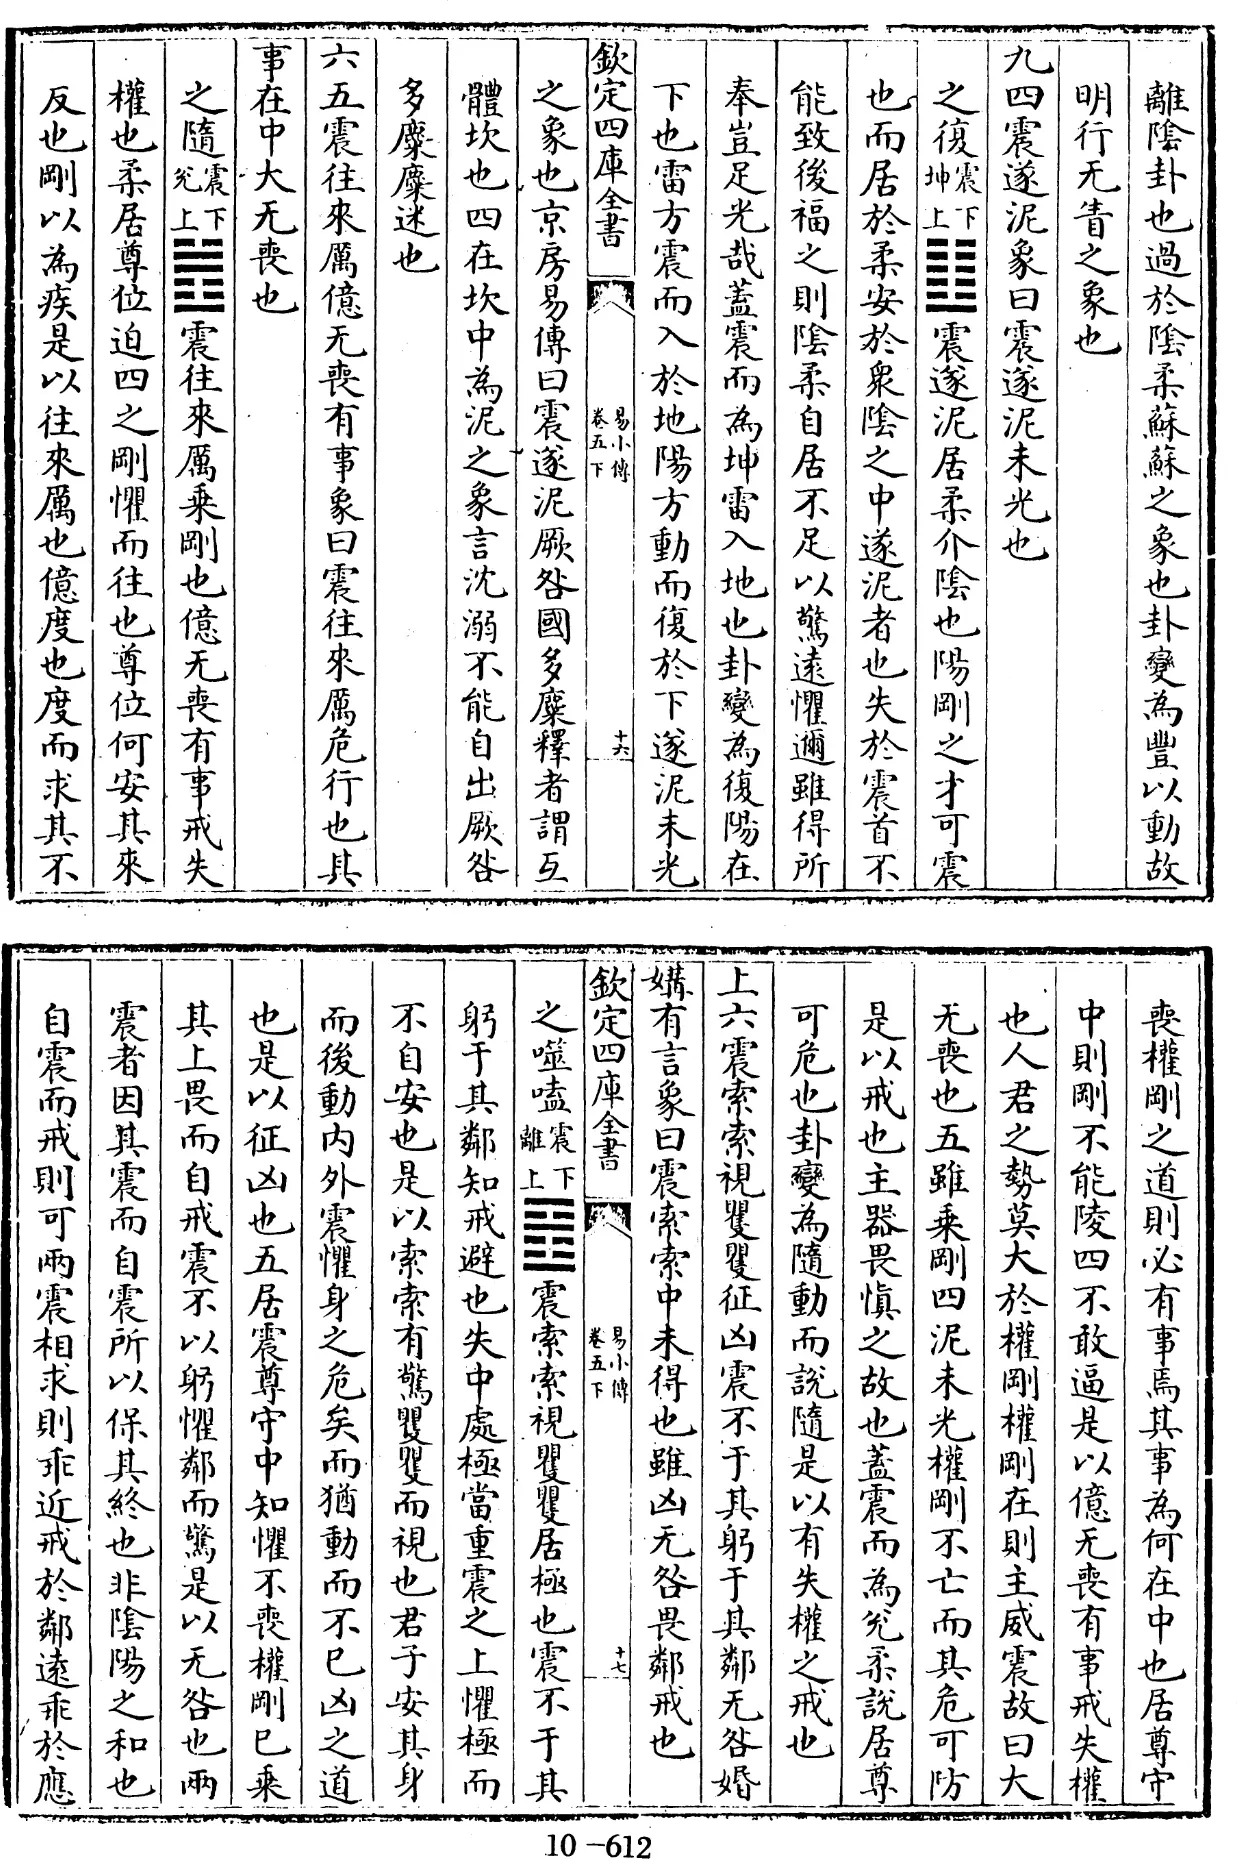 離陰卦也過於陰柔蘇蘇之象也卦變為豐以動故
明行无眚之象也
九四震遂泥象曰震遂泥未光也
之復震下坤上䷗震遂泥居柔介陰也陽剛之才可震
也而居於柔安於衆陰之中遂泥者也失於震首不
能致後福之則陰柔自居不足以驚遠懼邇雖得所
奉豈足光哉蓋震而為坤雷入地也卦變為復陽在
下也雷方震而入於地陽方動而復於下遂泥未光
欽定四庫全書 易小傳卷五下 十六
之象也京房易傳曰震遂泥厥咎國多麋釋者謂互
體坎也四在坎中為泥之象言沈溺不能自出厥咎
多麋麋迷也
六五震往來厲億无喪有事象曰震往來厲危行也其
事在中大无喪也
之隨震下兊上䷐震往來厲乗剛也億无喪有事戒失
權也柔居尊位迫四之剛懼而往也尊位何安其來
反也剛以為疾是以往來厲也億度也度而求其不
喪權剛之道則必有事焉其事為何在中也居尊守
中則剛不能陵四不敢逼是以億无喪有事戒失權
也人君之勢莫大於權剛權剛在則主威震故曰大
无喪也五雖乗剛四泥未光權剛不亡而其危可防
是以戒也主器畏慎之故也蓋震而為兊柔說居尊
可危也卦變為隨動而說隨是以有失權之戒也
上六震索索視矍矍征凶震不于其躬于其鄰无咎婚
媾有言象曰震索索中未得也雖凶无咎畏鄰戒也
欽定四庫全書 易小傳卷五下 十七
之噬嗑震下離上䷔震索索視矍矍居極也震不于其
躬于其鄰知戒避也失中處極當重震之上懼極而
不自安也是以索索有驚矍矍而視也君子安其身
而後動内外震懼身之危矣而猶動而不已凶之道
也是以征凶也五居震尊守中知懼不喪權剛已乗
其上畏而自戒震不以躬懼鄰而驚是以无咎也兩
震者因其震而自震所以保其終也非陰陽之和也
自震而戒則可兩震相求則乖近戒於鄰遠乖於應
10-612